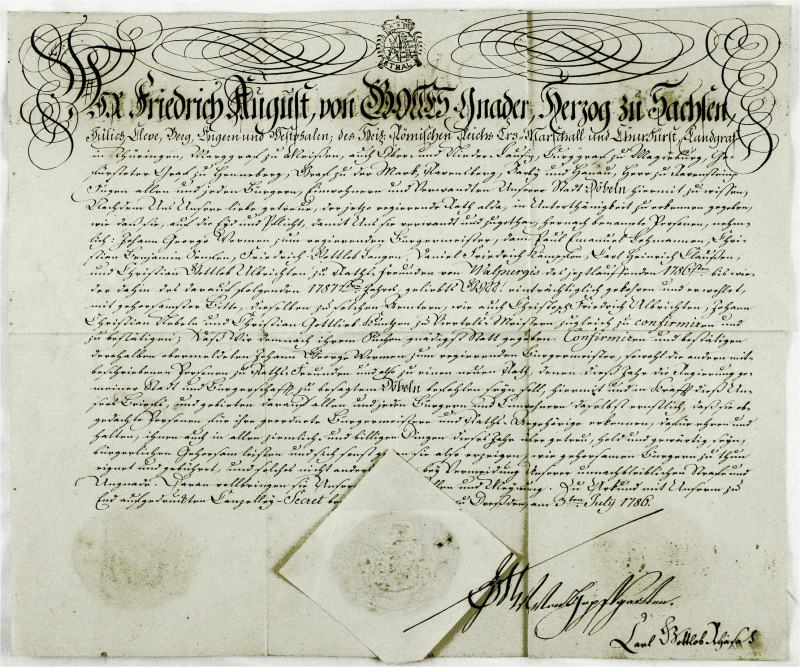 WJR Friedrich August, von GOTTES Gnaden, Herzog zu Sachsen,
Jülich, Cleve, Berg, Engern und Westphalen, des Heil. Römischen Reichs Erz-Marschall und Churfürst, Landgraf
in Thüringen, Marggraf zu Meißen, auch Ober- und Nieder-Lausiz, Burggraf zu Magdeburg, Ge-
fürsteter Graf zu Henneberg, Graf zu der Mark, Ravensberg, Barby und Hanau, Herr zu Ravenstein,
Fügen allen und jeden Bürgern, Einwohnern und Verwandten Unserer Stadt Döbeln hiermit zu wissen,
Nachdem Uns Unsere liebe getreue, der jetzo regierende Rath alda, in Unterthänigkeit zu erkennen gegeben,
wie daß sie, auf die Eyd und Pflicht, damit Uns sie verwandt und zugethan, hernach benannte Personen, nehm-
lich: Johann George zum regierenden Bürgermeister, dann Paul Emanuel Lehmannen, Chri-
stian Benjamin Friedrich Gottlob Daniel Friedrich Carl Heinrich
und Christian Gottlob Ulbrichten, zu Raths-Freunden von Walpurgis des jetztlaufenden 1786sten bis wie-
der dahin des darauf folgenden 1787sten Jahres, geliebts GOtt! einträchtiglich gekohren und erwehlet,
mit gehorsamster Bitte, dieselben zu solchen Aemtern, wie auch Christoph Friedrich Ulbrichten, Johann
Christian und Christian Gottlieb zu Viertels-Meistern zugleich zu confirmiren und
zu bestätigen; Daß Wir demnach ihrem Suchen gnädigst Statt gegeben. Confirmiren und bestätigen
derohalben obermeldeten Johann George zum regierenden Bürgermeister, sowohl die andern mit-
beschriebenen Personen zu Raths-Freunden und also zu einem neuen Rath, denen dieß Jahr die Regierung ge-
meiner Stadt und Bürgerschafft zu besagten Döbeln befohlen seyn soll, hiermit und in Krafft dieß Un-
sers Briefs, und gebieten darauf allen und jeden Bürgern und Einwohnern daselbst ernstlich, daß sie ob-
gedachte Personen für ihre geordnete Bürgermeistere und Raths-Angehörige erkennen, dafür ehren und
halten, ihnen auch in aller ziemlich- und billigen Dingen dieses Jahr über getreu, hold und gewärtig seyn,
bürgerlichen Gehorsam leisten und sich sonst gegen sie also erzeigen, wie gehorsamen Bürgern zu thun
eignet und gebühret, und solches nicht anders bey Vermeidung Unserer unnachbleiblichen Strafe und
Ungnade. Daran vollbringen sie Unsern Willen und Meynung. Zu Urkund mit Unserm zu
End aufgedruckten Canzelley-Secret zu Dreßden, am 3ten July 1786.
Carl Gottlob